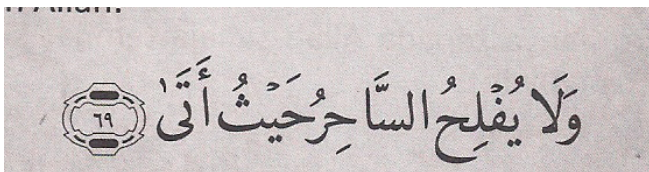 وَلَا يُفْلِحُ السَّاحِرُ حَيْثُ أَتَىٰ ٦٩